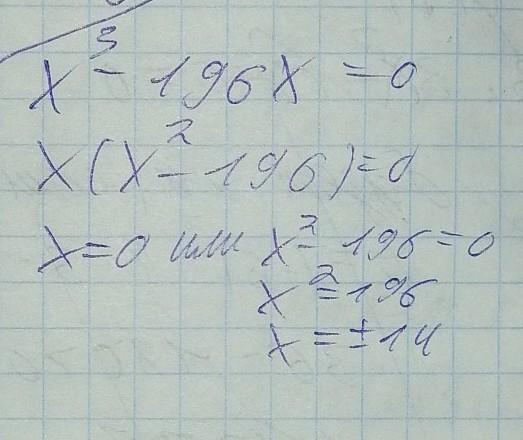 x³ - 196x = 0
x(x² - 196) = 0
x = 0 или x² - 196 = 0
x² = 196
x = ±14